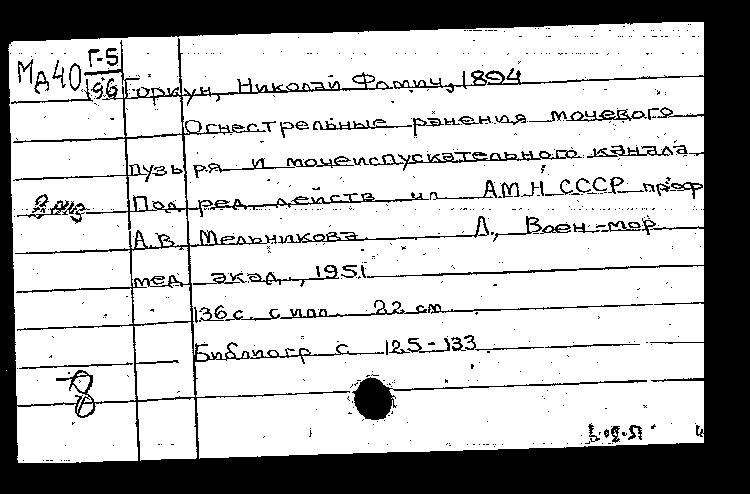 МА40 Г-5
196
Горкун, Николай Фомич, 1894
Огнестрельные ранения мочевого
пузыря и мочеиспускательного канала
2 экз
Под ред. действ чл АМН СССР проф
А.В. Мельникова Л, Воен-мор
мед акад., 1951
136 с. с илл. 22 см
Библиогр с 125-133
8